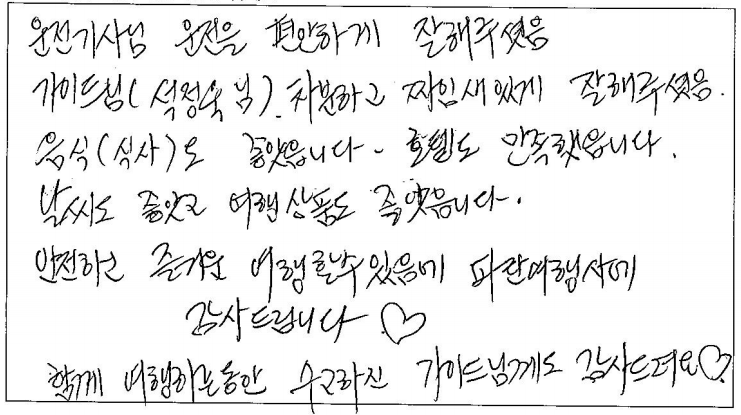 운전기사님 운전을 편안하게 잘해주셨음
가이드님(석정욱님). 차분하고 짜임새있게 잘해주셨음.
음식(식사)도 좋았읍니다. 호텔도 만족했읍니다.
날씨도 좋았고 여행상품도 좋았읍니다.
안전하고 즐거운 여행할수있음에 파란여행사에
감사드립니다 ♡
함께 여행하는동안 수고하신 가이드님께도 감사드려요♡.